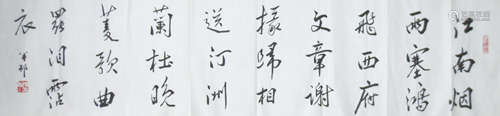 江南烟
雨塞鸿
飞西府
文章谢
掾归相
送汀洲
兰杜晚
菱歌曲
罢泪霑
衣